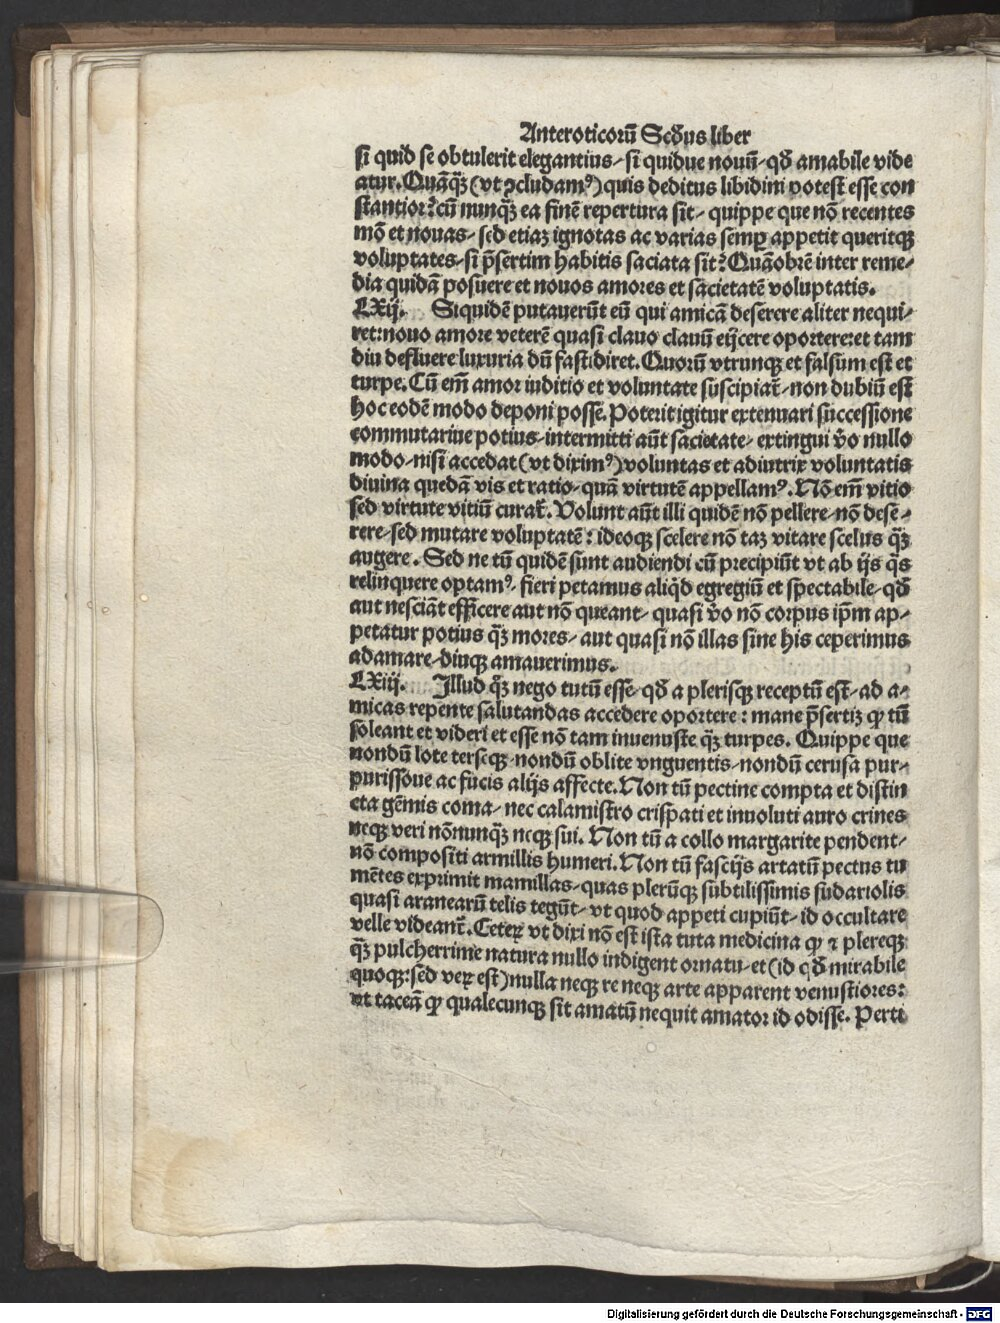 Anteroticorū Scd̄us liber
si quid se obtulerit elegantius/ si quidue nouū/ qd̄ amabile vide
atur. Quāqꝫ (vt ↄcludamꝰ) quis deditus libidini potest esse con
stantior? cū nunqꝫ ea finē repertura sit/ quippe que nō recentes
mō et nouas/ sed etiaꝫ ignotas ac varias semꝑ appetit queritqꝫ
voluptates/ si p̄sertim habitis saciata sit? Quāobrē inter reme/
dia quidā posuere et nouos amores et sacietatē voluptatis.
LXij. Siquidē putauerūt eū qui amicā deserere aliter nequi/
ret: nouo amore veterē quasi clauo clauū eijcere oportere: et tam
diu defluere luxuria dū fastidiret. Quorū vtrunqꝫ et falsum est et
turpe. Cū em̄ amor iuditio et voluntate suscipiat̄/ non dubiū est
hoc eodē modo deponi posse. Poterit igitur extenuari successione
commutariue potius/ intermitti aūt sacietate/ extingui v̄o nullo
modo/ nisi accedat (vt diximꝰ) voluntas et adiutrix voluntatis
diuina quedā vis et ratio/ quā virtutē appellamꝰ. Nō em̄ vitio
sed virtute vitiū curat̄. Volunt aūt illi quidē nō pellere/ nō dese/
rere/ sed mutare voluptatē: ideoqꝫ scelere nō taꝫ vitare scelus qꝫ̄
augere. Sed ne tū quidē sunt audiendi cū precipiūt vt ab ijs q̄s
relinquere optamꝰ/ fieri petamus aliqd̄ egregiū et spectabile/ qd̄
aut nesciāt efficere aut nō queant/ quasi v̄o nō corpus ip̄m ap/
petatur potius qꝫ̄ mores/ aut quasi nō illas sine his ceperimus
adamare/ diuqꝫ amauerimus.
LXiij. Illud qꝫ̄ nego tutū esse/ qd̄ a plerisqꝫ receptū est/ ad a/
micas repente salutandas accedere oportere: mane p̄sertiꝫ ꝙ tū
soleant et videri et esse nō tam inuenuste qꝫ̄ turpes. Quippe que
nondū lote terseqꝫ/ nondū oblite vnguentis/ nondū cerusa pur/
purissoue ac fucis alijs affecte. Non tū pectine compta et distin
cta gēmis coma/ nec calamistro crispati et inuoluti auro crines
neqꝫ veri nōnunqꝫ̄ neqꝫ sui. Non tū a collo margarite pendent/
nō compositi armillis humeri. Non tū fascijs artatū pectus tu
mētes exprimit mamillas/ quas plerūqꝫ subtilissimis sudariolis
quasi aranearū telis tegūt/ vt quod appeti cupiūt/ id occultare
velle videant̄. Ceteꝝ vt dixi nō est ista tuta medicina ꝙ ⁊ plereqꝫ
qꝫ̄ pulcherrime natura nullo indigent ornatu/ et (id qd̄ mirabile
quoqꝫ: sed veꝝ est) nulla neqꝫ re neqꝫ arte apparent venustiores:
vt taceā ꝙ qualecunqꝫ sit amatū nequit amator id odisse. Perti
Digitalisierung gefördert durch die Deutsche Forschungsgemeinschaft - DFG